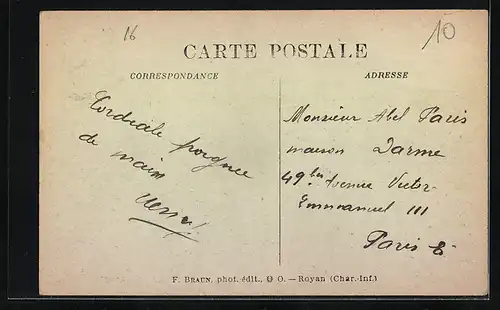 16
10
CARTE POSTALE
CORRESPONDANCE
ADRESSE
Cordiale poignée
de main
Monsieur Abel Paris
maison Darme
49bis Avenue Victor
Emmanuel III
Paris 8
F. BRAUN, phot. édit., O. — Royan (Char.-Inf.)